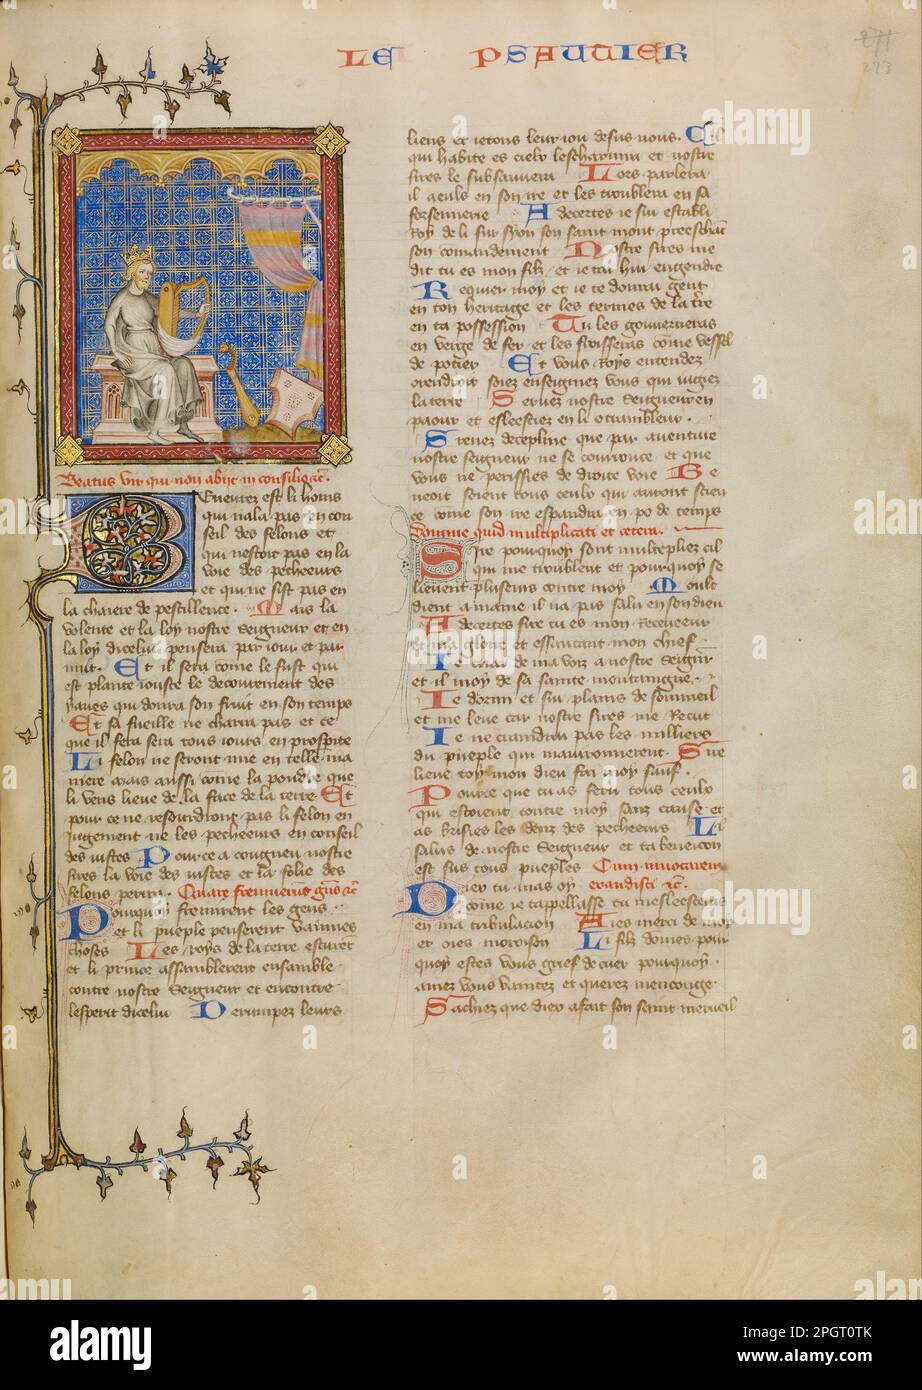 LE PSAUTIER
271
273
Beatus vir qui non abiit in consilio etc.
Bueurez est li homs
qui nala pas en con
seil des felons et
qui nestoit pas en la
voie des pecheeurs
et qui ne sist pas en
la chaiere de pestillence. Mais la
volente et la loy nostre Seigneur et en
la loy dicelui pensera par iour et par
nuit. Et il sera come le fust qui
est plante iouste le decourement des
yaues qui donra son fruit en son temps
Et sa fueille ne charra pas et ce
que il fera sera tous iours en prosperite
Li felon ne seront mie en telle ma
niere mais aussi come la poudre que
li vens lieue de la face de la terre Et
pour ce ne resourdront pas li felon en
iugement ne les pecheeurs en conseil
des iustes Pource a congneu nostre
sires la voie des iustes et la folie des
felons perira. Quare fremuerunt gentes etc
Pourquoy fremirent les gens
et li pueple penserent vainnes
choses Les roys de la terre esturet
et li prince assemblerent ensamble
contre nostre Seigneur et encontre
lesperit dicelui Derumpez leurs
liens et ietons leur iou desus nous. Cil
qui habite es cielx lescharnira et nostre
sires le subsannera Lors parlera
il a euls en son ire et les troublera en sa
forsennerie A decertes ie sui establi
Roy de li sur syon son saint mont preeschant
son comandement Nostre sires me
dit tu es mon filz et ie tai hui engendre
Requier moy et ie te donrai gent
en ton heritage et les termes de la tre
en ta possession Tu les gouuerneras
en verge de fer et les froisseras come vessel
de potier Et vous Roys entendez
orendroit soiez enseigniez vous qui iugiez
la terre Seruez nostre Seigneur en
paour et esleesciez en li o trambleur.
Prenez decepline que par auenture
nostre seigneur ne se courouce et que
vous ne perissies de droite voie Be
neoit soient tous ceulx qui auront fiance
ce come son ire espandra en po de temps
Domine quid multiplicati et cetera.
Sire pourquoy sont multepliez cil
qui me troublent et pourquoy se
lieuent plusieurs contre moy Moult
dient a mame il na pas salu en son dieu
A decertes sire tu es mon Receueur
et ma gloire et essaucant mon chief
Ie criai de ma voix a nostre Seigneur
et il moy de sa sainte montaingne.
Ie dormi et sui plains de sommeil
et me leue car nostre sires me Recut
Ie ne craindrai pas les milliers
du pueple qui mauironnerent. Sire
lieue toy mon dieu fai moy sauf.
Pource que tu as feru tous ceulx
qui estoient contre moy sanz cause et
as brisies les denz des pecheeurs Li
salus de nostre Seigneur et ta beneicon
est sus tous pueples Cum inuocarem
Diex tu mas oy exaudisti etc.
come ie tappellasse tu mesleescias
en ma tribulacion Aies merci de moy
et oies moroison Li filz domes pour
quoy estes vous grief de cuer pourquoy
amez vous vanitez et querez menconge
Sachiez que diex a fait son saint merueil
alamy
Image ID: 2PGT0TK
www.alamy.com